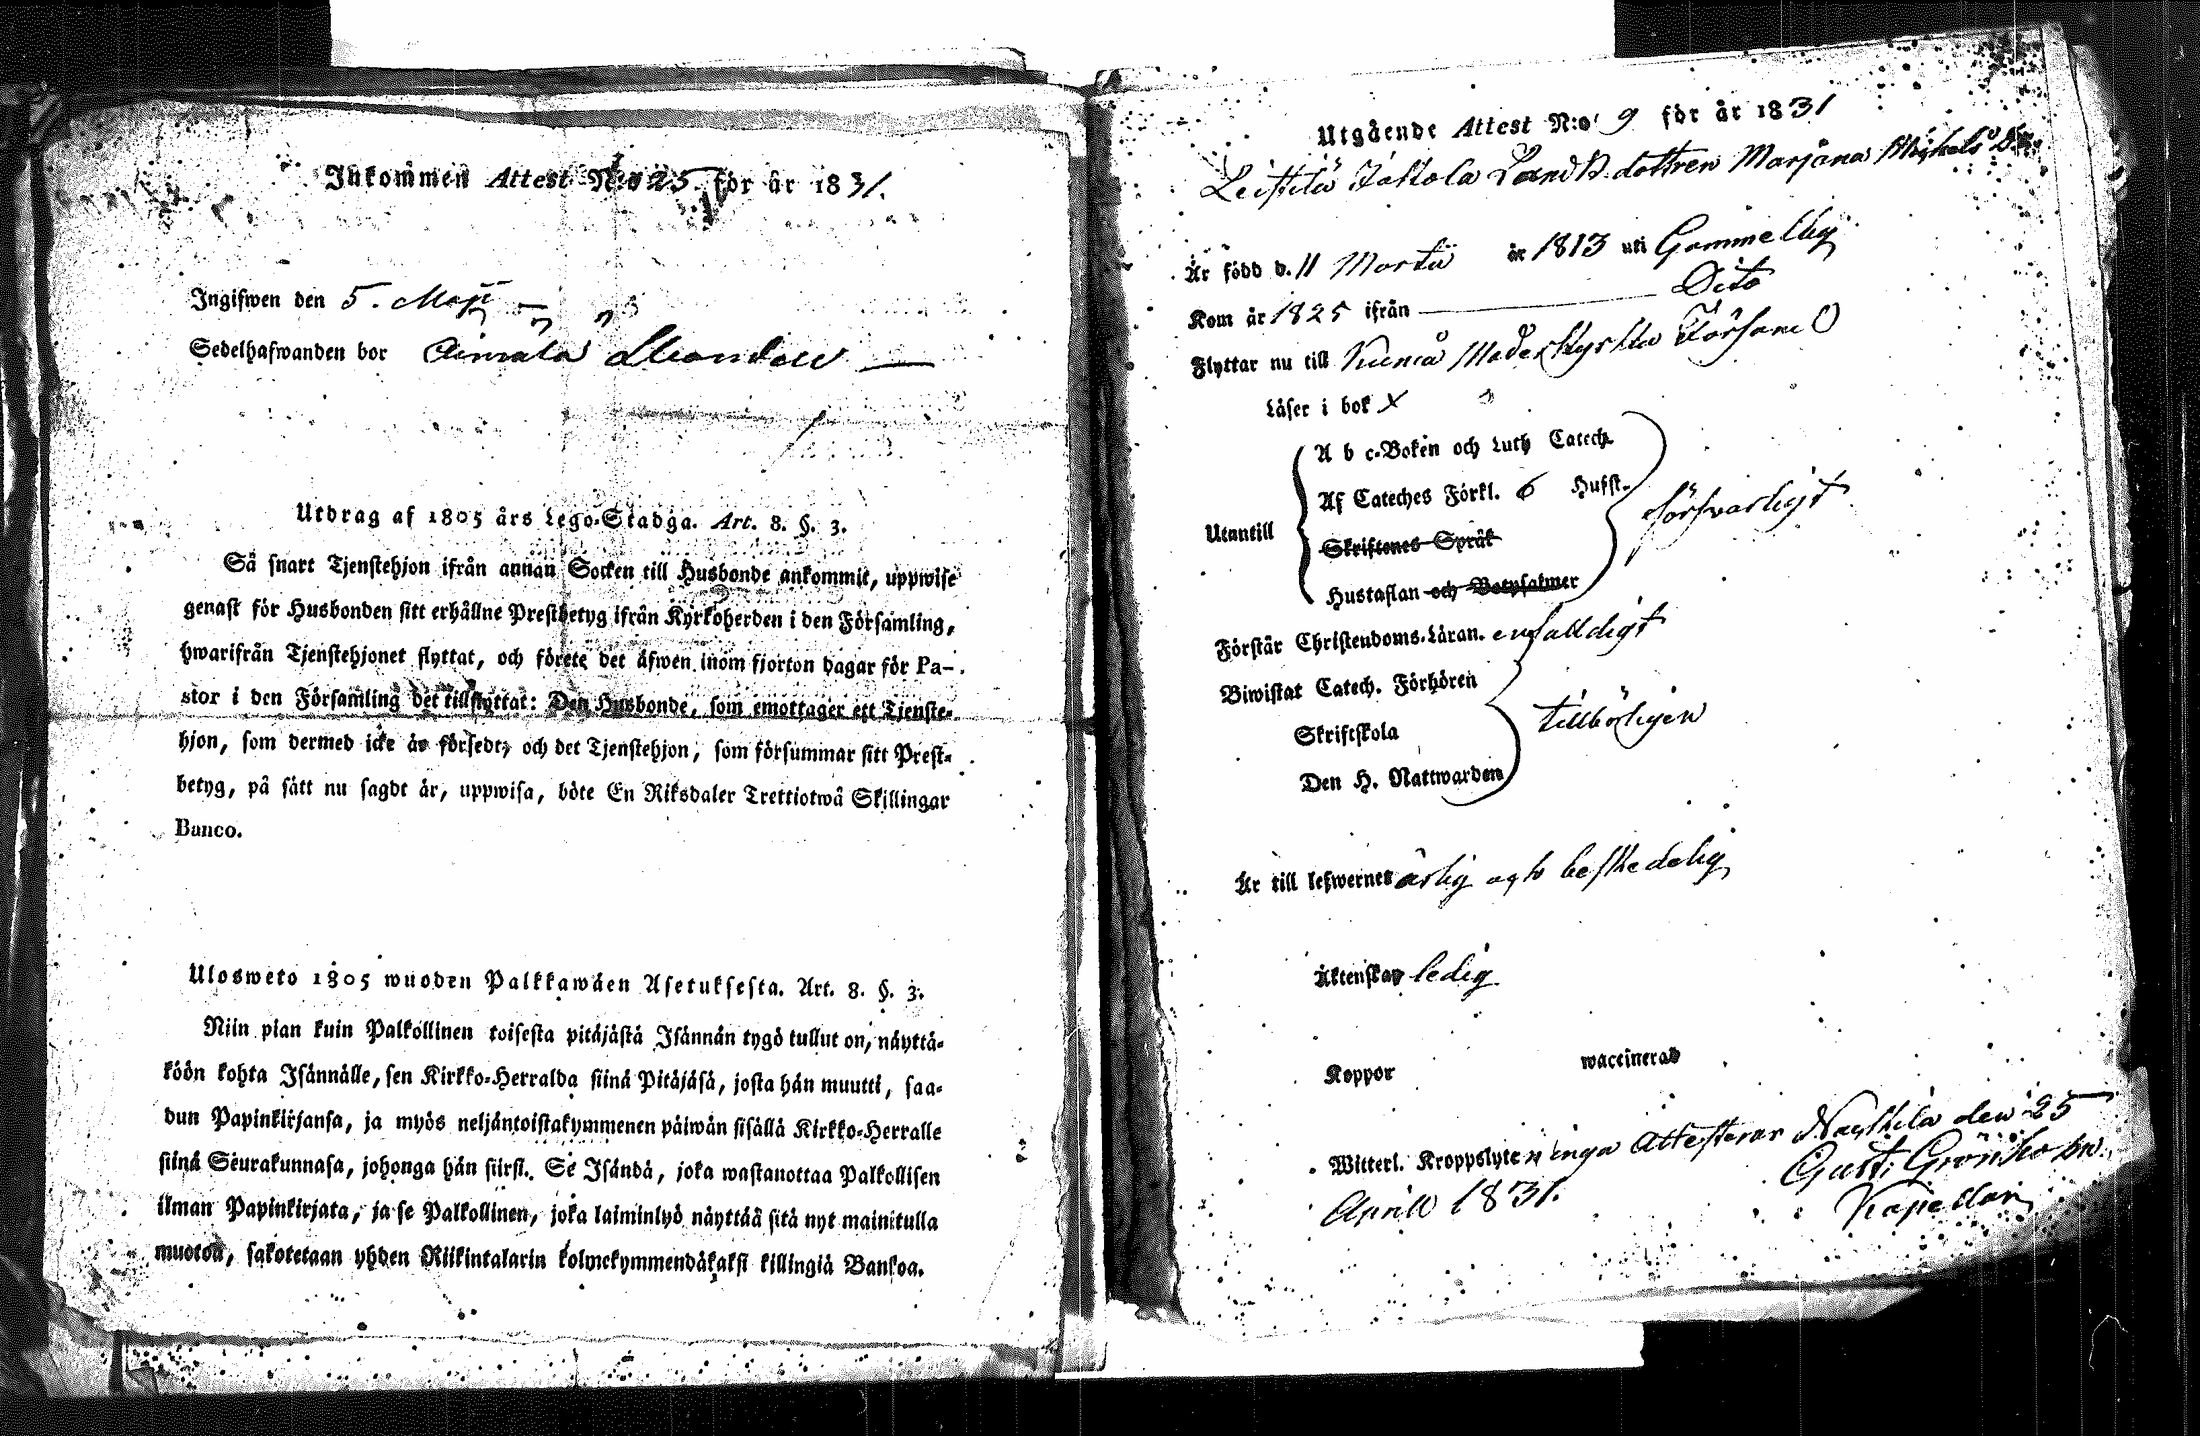 Inkommen Attest N:o 25. för år 1831.
Ingifwen den 5. Maji
Sedelhafwanden bor
Utdrag af 1805 års Lego-Stadga. Art. 8. §. 3.
Så snart Tjenstehjon ifrån annan Socken till Husbonde ankommit, uppwise
genast för Husbonden sitt erhållne Prestbetyg ifrån Kyrkoherden i den Församling,
hwarifrån Tjenstehjonet flyttat, och förete det äfwen inom fjorton dagar för Pa-
stor i den Församling det tillflyttat: Den Husbonde, som emottager ett Tjenste-
hjon, som dermed icke är försedt, och det Tjenstehjon, som försummar sitt Prest-
betyg, på sätt nu sagdt är, uppwisa, böte En Riksdaler Trettiotwå Skillingar
Banco.
Ulosweto 1805 wuoden Palkkawäen Asetuksesta. Art. 8. §. 3.
Niin pian kuin Palkollinen toisesta pitäjästä Isännän tygö tullut on, näyttä-
köön kohta Isännälle, sen Kirkko-Herralda siinä Pitäjäsä, josta hän muutti, saa-
dun Papinkirjansa, ja myös neljäntoistakymmenen päiwän sisällä Kirkko-Herralle
siinä Seurakunnasa, johonga hän siirsi. Se Isändä, joka wastanottaa Palkollisen
ilman Papinkirjata, ja se Palkollinen, joka laiminlyö näyttää sitä nyt mainitulla
muotoa, sakotetaan yhden Riikintalarin kolmekymmendäkaksi killingiä Bankoa.
Utgående Attest N:o 9 för år 1831
Leistilä Jakola Landb.dottren Marjana Mickels Dr.
Är född d. 11 Martii år 1813 uti Gammelby
Kom år 1825 ifrån Dito
Flyttar nu till Kumå Moderkyrko Församl
Läser i bok x
A b c-Boken och Luth Catech.
Af Cateches Förkl. 6 Husst.
Utantill försvarligt
Skriftenes Språk
Hustaflan och Botpsalmer
Förstår Christendoms-Läran. enfalldigt
Biwistat Catech. Förhören
Skriftskola tillbörligen
Den H. Nattwarden
Är till lefwernet ärlig och beskedelig
Äktenskap ledig
Koppor waccinerad
Witterl. Kroppslyten inga Attesterar Nackila den 25
April 1831. Gust: Grönholm
Kapellan